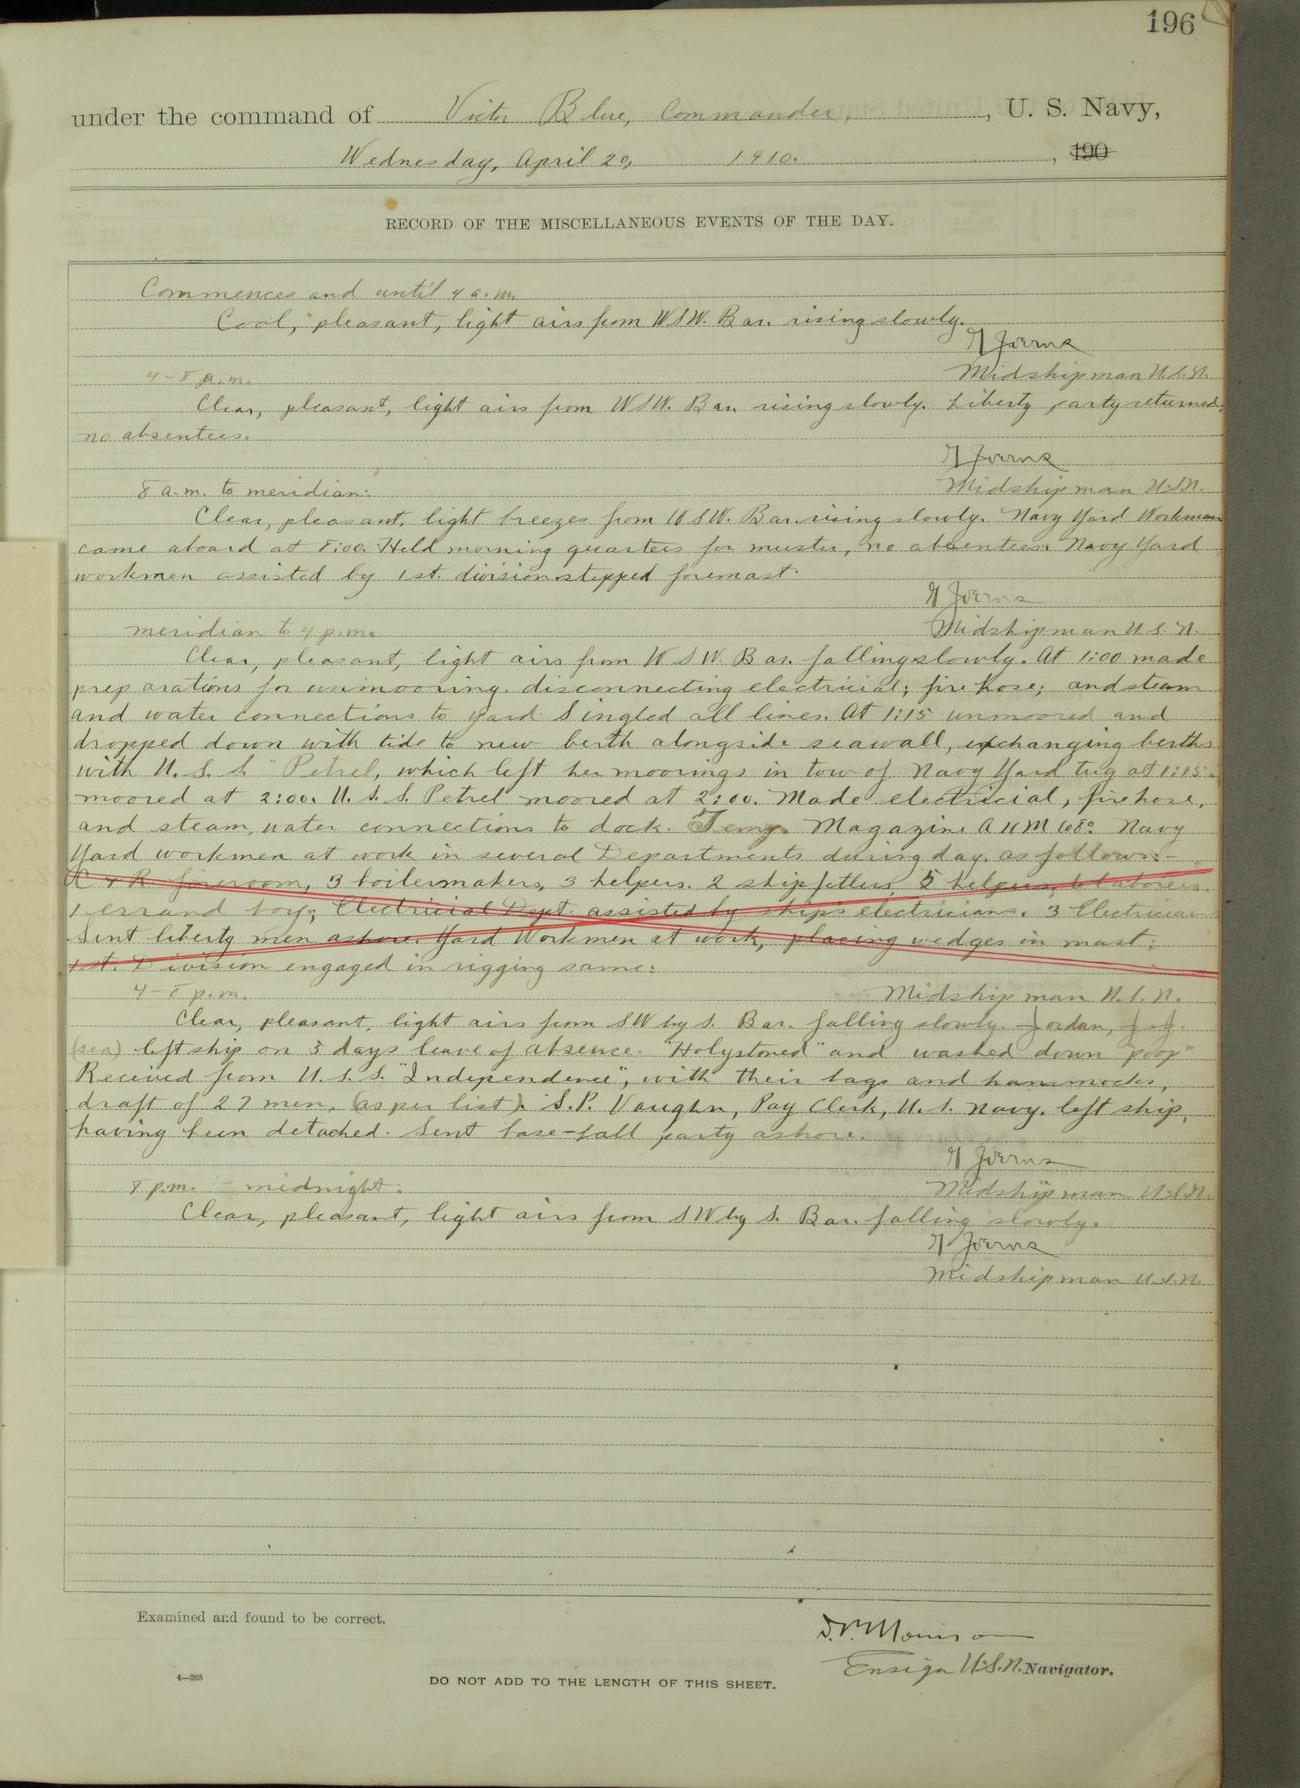 196
under the command of Victor Blue, Commander, , U. S. Navy,
Wednesday, April 20, 1910. , 190
RECORD OF THE MISCELLANEOUS EVENTS OF THE DAY.
Commences and until 4 a.m.
Cool, pleasant, light airs from WSW. Bar. rising slowly.
G Joerns
4-8 a.m. Midshipman U.S.N.
Clear, pleasant, light airs from WSW. Bar. rising slowly. Liberty party returned,
no absentees.
G Joerns
8 a.m. to meridian: Midshipman U.S.N.
Clear, pleasant, light breezes from WSW. Bar. rising slowly. Navy Yard Workmen
came aboard at 8:00. Held morning quarters for muster, no absentees. Navy Yard
workmen assisted by 1st. division stepped foremast.
G Joerns
meridian to 4 p.m. Midshipman U.S.N.
Clear, pleasant, light airs from WSW. Bar. falling slowly. At 1:00 made
preparations for unmooring. disconnecting electricial; fire hose; and steam
and water connections to yard. Singled all lines. At 1:15 unmoored and
dropped down with tide to new berth alongside seawall, exchanging berths
with U. S. S. "Petrel, which left her moorings in tow of Navy Yard tug at 1:15.
moored at 2:00. U. S. S. Petrel moored at 2:00. Made electricial, fire hose,
and steam, water connections to dock. Temp. Magazine A 11 M 68° Navy
Yard workmen at work in several Departments during day. as follows:-
C & R fireroom, 3 boilermakers, 3 helpers. 2 shipfitters, 5 helpers, 6 laborers.
1 errand boy; Electricial Dept. assisted by ship's electricians. 3 Electricians
Sent liberty men ashore. Yard Workmen at work, placing wedges in mast;
1st. Division engaged in rigging same:
4-8 p.m. Midshipman U.S.N.
Clear, pleasant, light airs from SW by S. Bar. falling slowly. Jordan, J.J.
(sea) left ship on 3 days leave of absence. "Holystoned" and washed down "poop"
Received from U. S. S. "Independence", with their bags and hammocks,
draft of 27 men, (as per list). S.P. Vaughn, Pay Clerk, U. S. Navy. left ship,
having been detached. Sent base-ball party ashore.
G Joerns
8 p.m. - midnight: Midshipman U.S.N.
Clear, pleasant, light airs from SW by S. Bar. falling slowly.
G Joerns
Midshipman U.S.N.
Examined and found to be correct.
Morrison
Ensign U.S.N. Navigator.
4—265
DO NOT ADD TO THE LENGTH OF THIS SHEET.